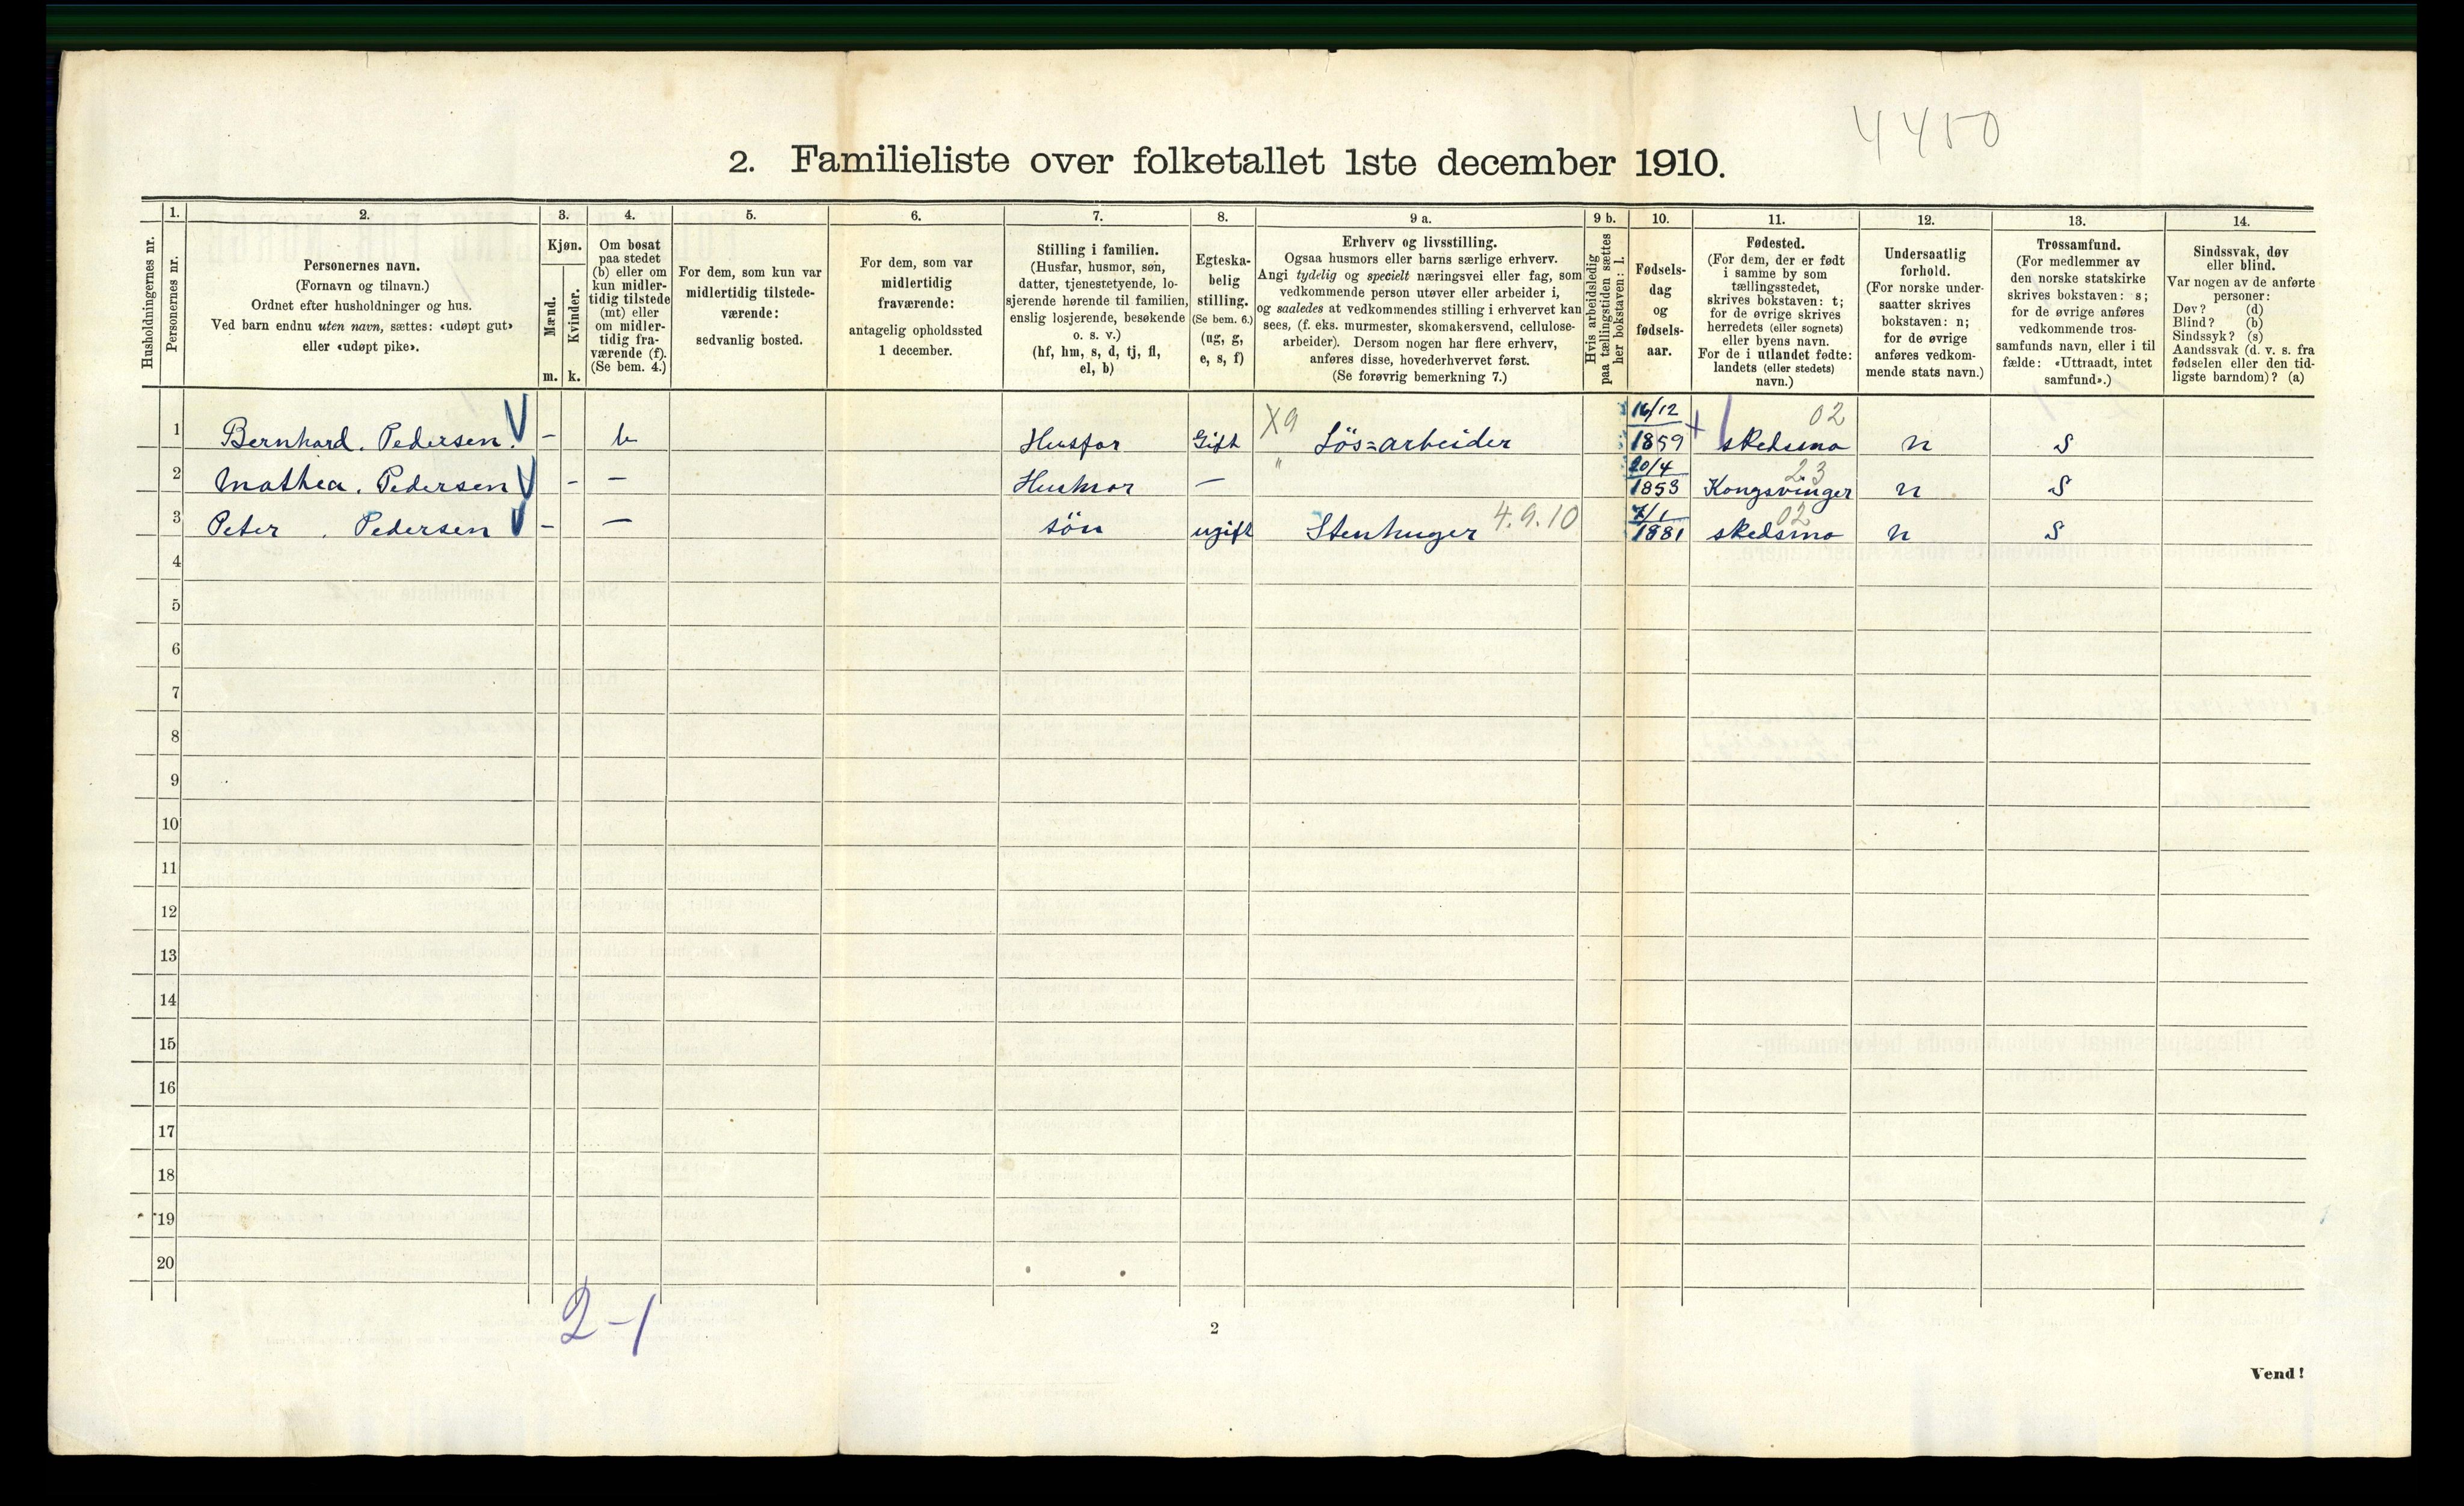 4450
2. Familieliste over folketallet 1ste december 1910.
Husholdningernes nr.
1.
Personernes nr.
2.
Personernes navn.
(Fornavn og tilnavn.)
Ordnet efter husholdninger og hus.
Ved barn endnu uten navn, sættes: «udøpt gut»
eller «udøpt pike».
3.
Kjøn.
Mænd.
m.
Kvinder.
k.
4.
Om bosat
paa stedet
(b) eller om
kun midler-
tidig tilstede
(mt) eller
om midler-
tidig fra-
værende (f).
(Se bem. 4.)
5.
For dem, som kun var
midlertidig tilstede-
værende:
sedvanlig bosted.
6.
For dem, som var
midlertidig
fraværende:
antagelig opholdssted
1 december.
7.
Stilling i familien.
(Husfar, husmor, søn,
datter, tjenestetyende, lo-
sjerende hørende til familien,
enslig losjerende, besøkende
o. s. v.)
(hf, hm, s, d, tj, fl,
el, b)
8.
Egteska-
belig
stilling.
(Se bem. 6.)
(ug, g,
e, s, f)
9 a.
Erhverv og livsstilling.
Ogsaa husmors eller barns særlige erhverv.
Angi tydelig og specielt næringsvei eller fag, som
vedkommende person utøver eller arbeider i,
og saaledes at vedkommendes stilling i erhvervet kan
sees, (f. eks. murmester, skomakersvend, cellulose-
arbeider). Dersom nogen har flere erhverv,
anføres disse, hovederhvervet først.
(Se forøvrig bemerkning 7.)
9 b.
Hvis arbeidsledig
paa tællingstiden sættes
her bokstaven: l.
10.
Fødsels-
dag
og
fødsels-
aar.
11.
Fødested.
(For dem, der er født
i samme by som
tællingsstedet,
skrives bokstaven: t;
for de øvrige skrives
herredets (eller sognets)
eller byens navn.
For de i utlandet fødte:
landets (eller stedets)
navn.)
12.
Undersaatlig
forhold.
(For norske under-
saatter skrives
bokstaven: n;
for de øvrige
anføres vedkom-
mende stats navn.)
13.
Trossamfund.
(For medlemmer av
den norske statskirke
skrives bokstaven: s;
for de øvrige anføres
vedkommende tros-
samfunds navn, eller i til
fælde: «Uttraadt, intet
samfund».)
14.
Sindssvak, døv
eller blind.
Var nogen av de anførte
personer:
Døv? (d)
Blind? (b)
Sindssyk? (s)
Aandssvak (d. v. s. fra
fødselen eller den tid-
ligste barndom)? (a)
1 Bernhard. Pedersen. V – b Husfar Gift X9 Lös=arbeider 16/12 1859 + 02 skedsmo n S
2 Mathea. Pedersen V - — Husmor — " 20/4 1853 23 Kongsvinger n S
3 Peter . Pedersen V – — sön ugift Stenhuger 4.9.10 7/1 1881 02 skedsmo n S
4
5
6
7
8
9
10
11
12
13
14
15
16
17
18
19
20
2-1
2
Vend!